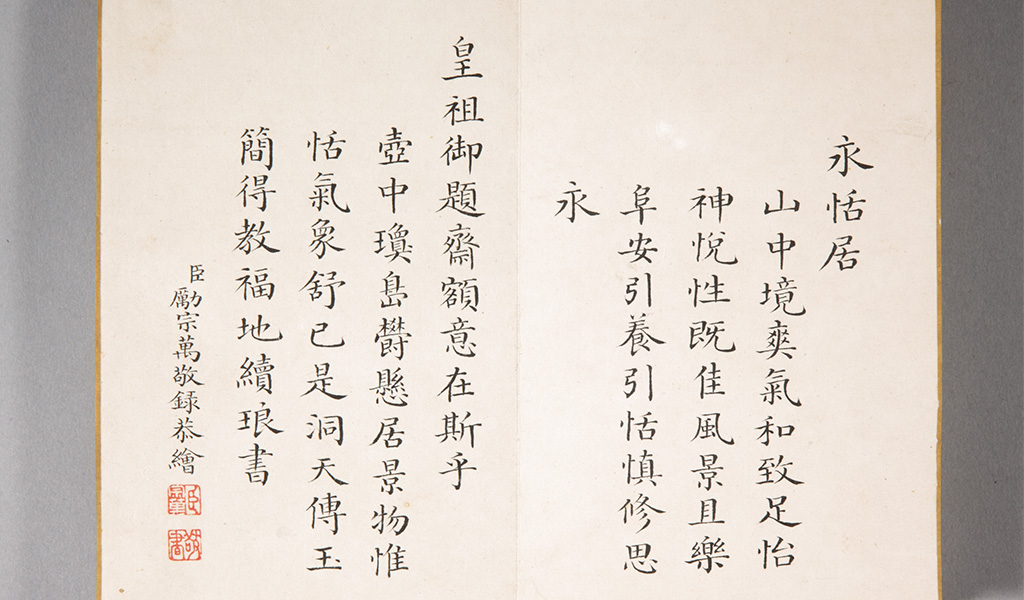 永恬居
山中境爽氣和致足怡
神悅性既佳風景且樂
阜安引養引恬慎修思
永
皇祖御題齋額意在斯乎
壺中瓊島欝懸居景物惟
恬氣象舒已是洞天傳玉
簡得教福地續琅書
臣勵宗萬敬録恭繪